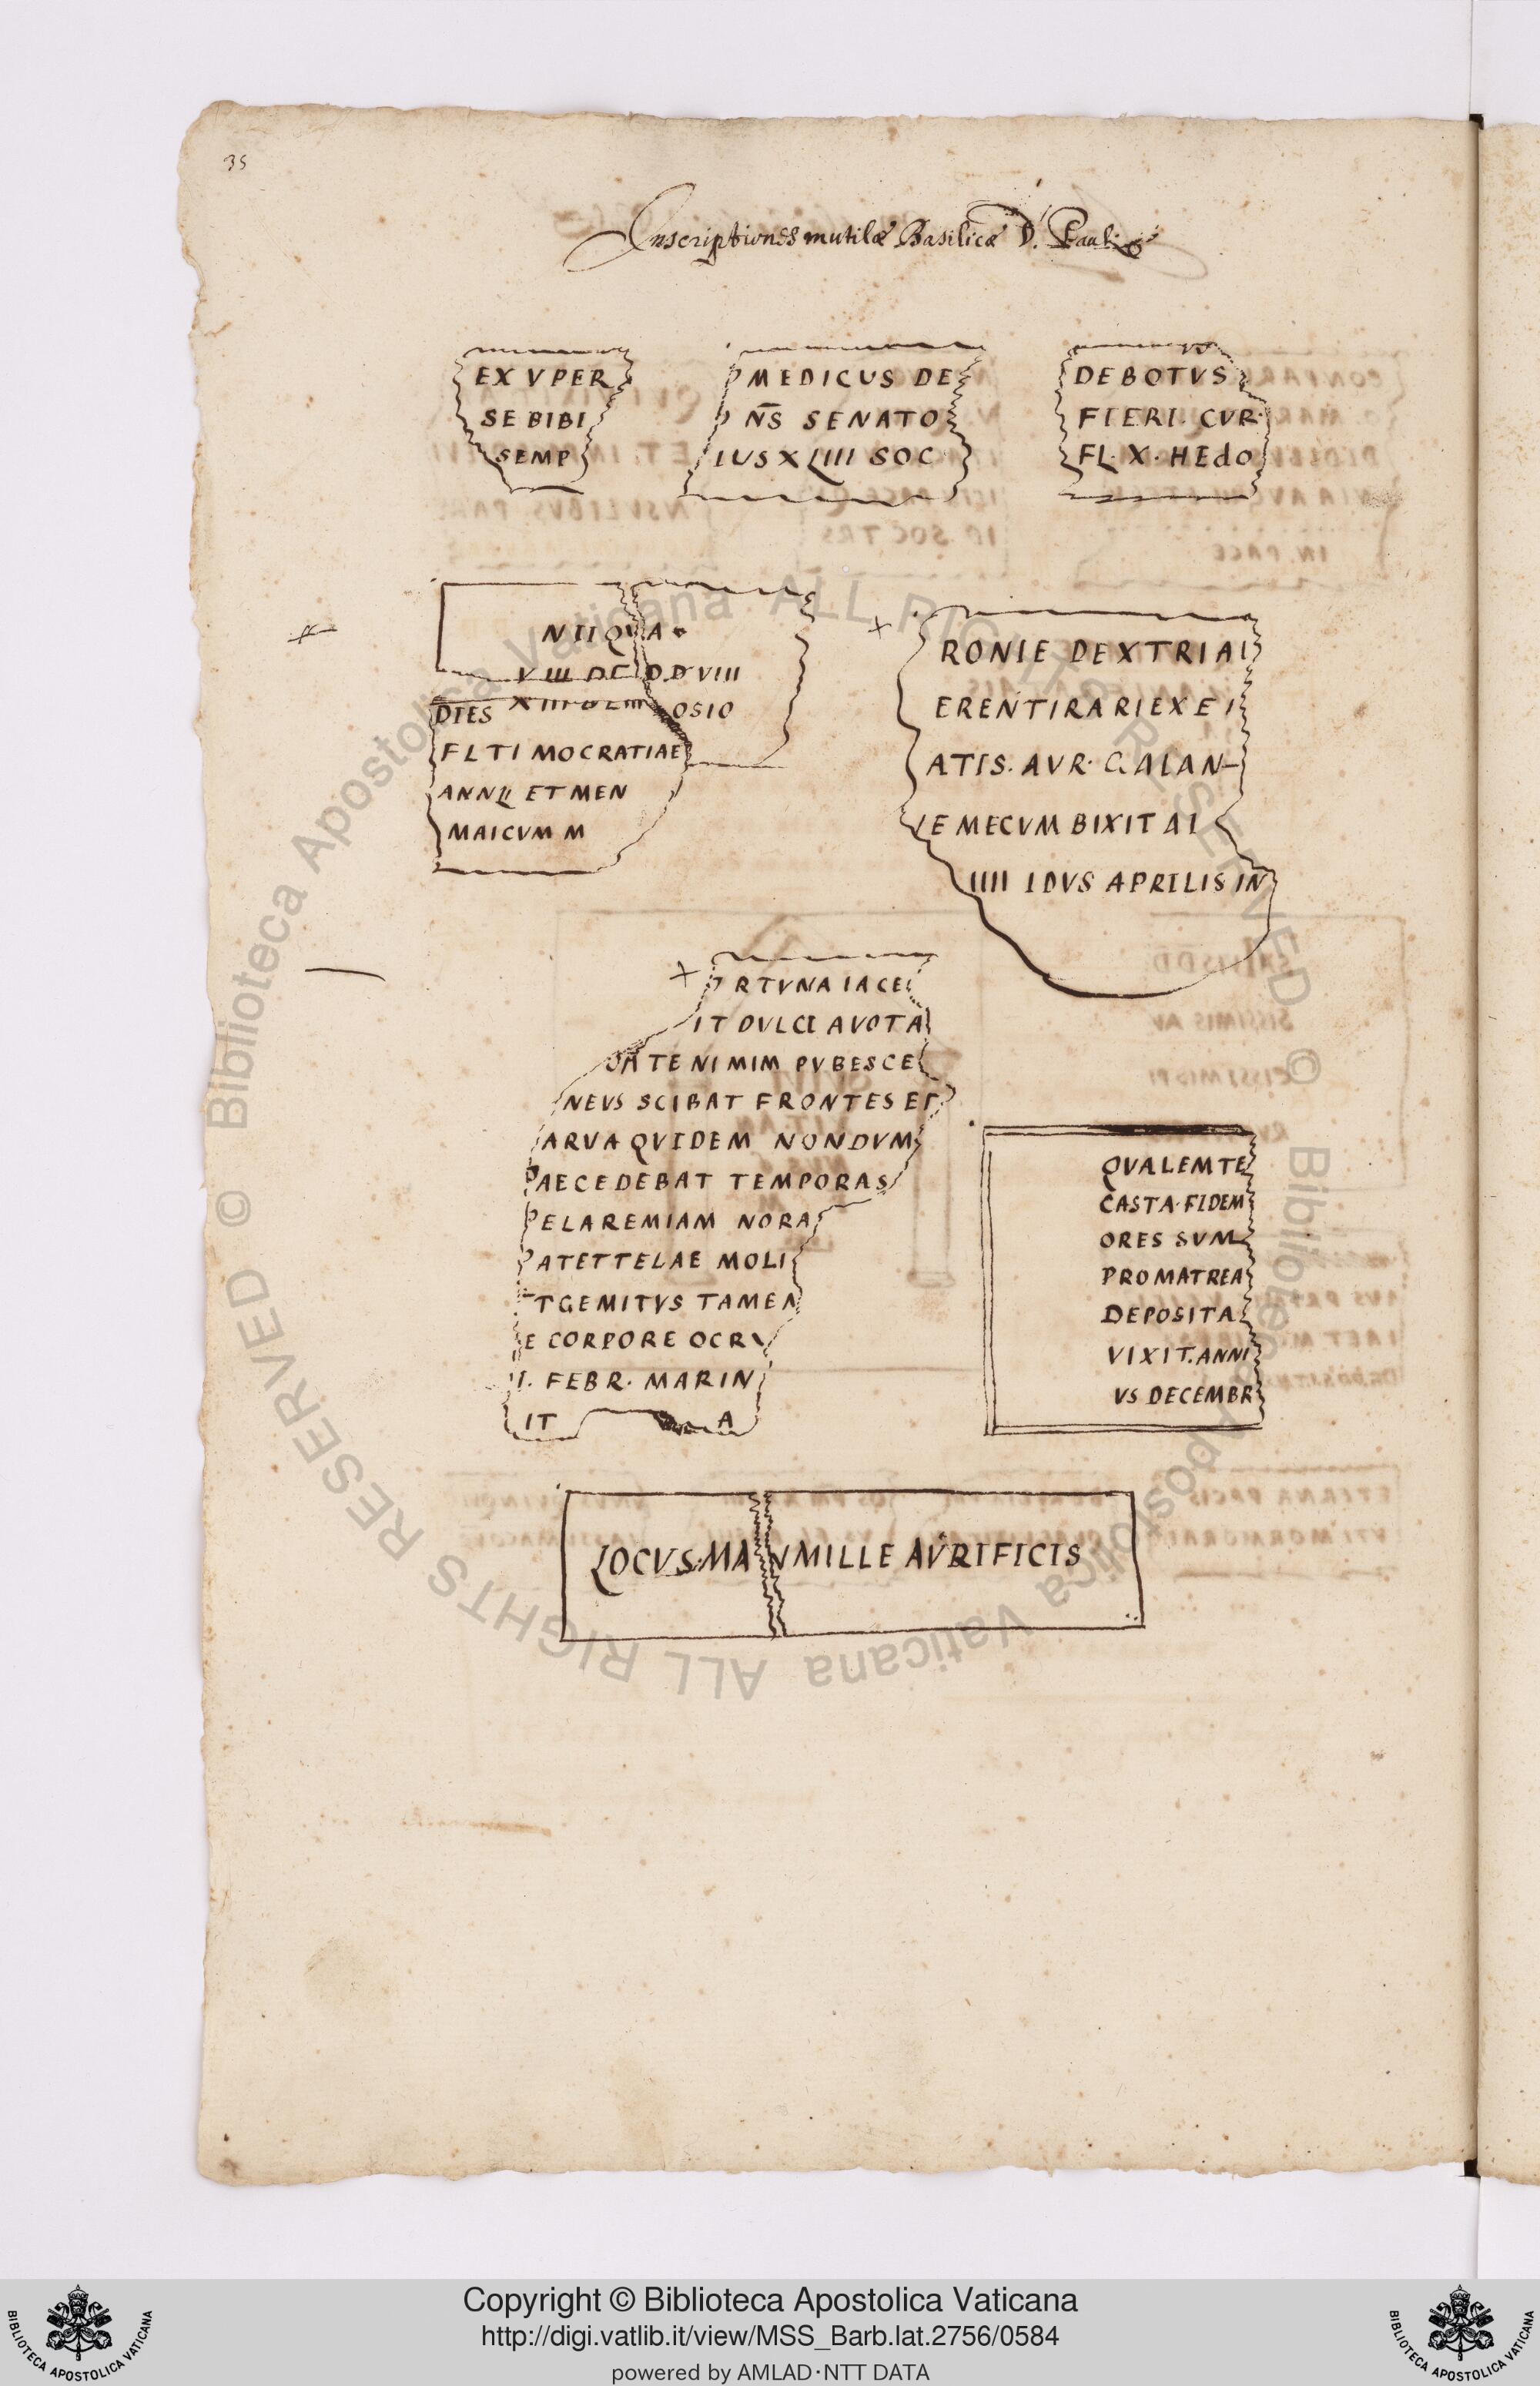 35
Inscriptiones mutilæ Basilicæ D. Pauli
EX VPER
SE BIBI
SEMP
MEDICUS DE
N̄S SENATO
IUS XLIIII SOC
DEBOTVS
FIERI. CVR.
FL. X. HEdO
NIIQVA
VIII DE DD VIII
DIES XIII OSIO
FLTI MOCRATIAE
ANNII ET MEN
MAICVM M
RONIE DEXTRIAI
ERENTIRARIEXEI
ATIS. AVR. GALAN
IE MECVM BIXIT AI
IIII IDVS APRILIS IN
RTVNA IACE
IT DVLCI AVOTA
ATE NIMIM PVBESCE
NEVS SCIBAT FRONTES ET
ARVA QVIDEM NONDVM
AECEDEBAT TEMPORAS
ELAREMIAM NORA
ATETTELAE MOLI
TGEMITVS TAMEN
E CORPORE OCRV
I. FEBR. MARIN
IT A
QVALEMTE
CASTA. FIDEM
ORES SVM
PROMATREA
DEPOSITA
VIXIT. ANNI
VS DECEMBR
LOCVS. MAXVMILLE AVRIFICIS
© Biblioteca Apostolica Vaticana ALL RIGHTS RESERVED
© Biblioteca Apostolica Vaticana ALL RIGHTS RESERVED
BIBLIOTECA APOSTOLICA VATICANA
Copyright © Biblioteca Apostolica Vaticana
http://digi.vatlib.it/view/MSS_Barb.lat.2756/0584
powered by AMLAD·NTT DATA
BIBLIOTECA APOSTOLICA VATICANA